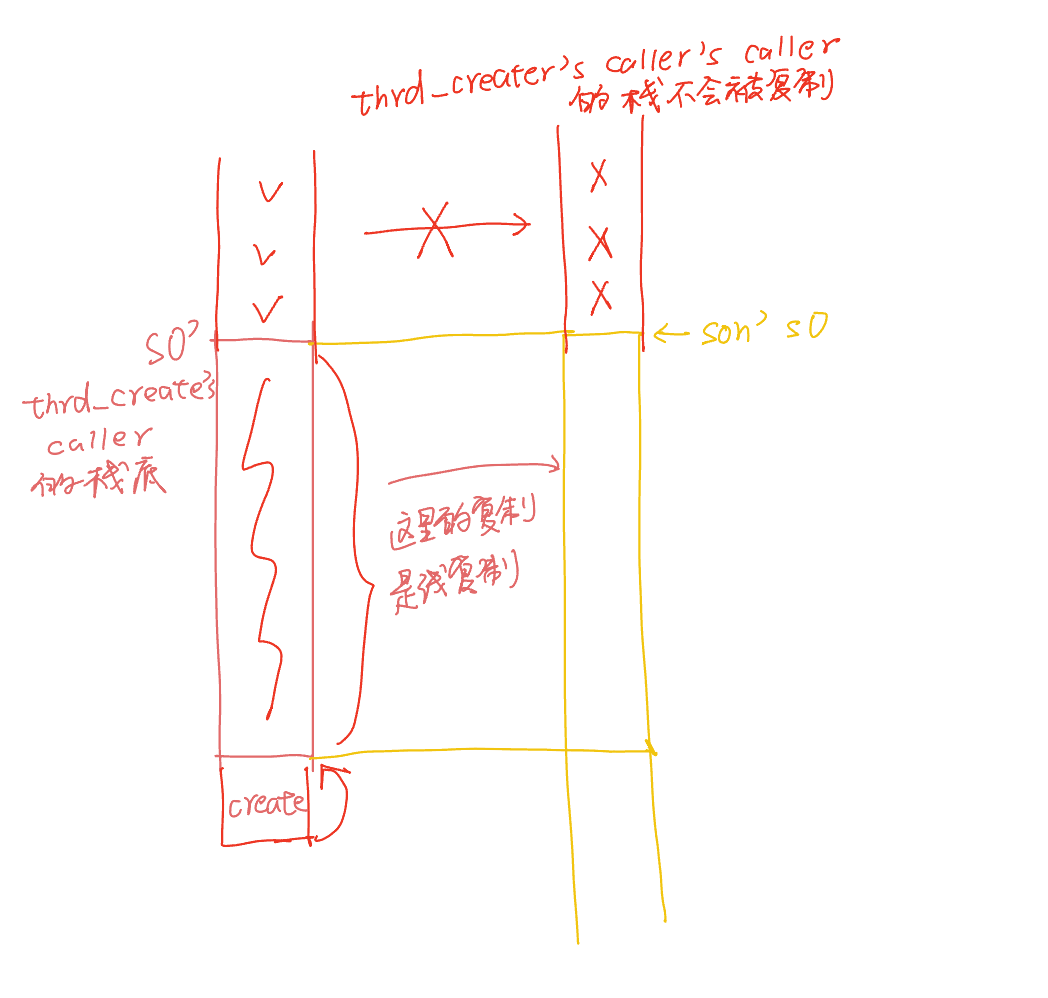 thrd_creater's caller's caller
的栈不会被复制
s0'
son's s0
thrd_create's
caller
的栈底
这里的复制
是浅复制
create